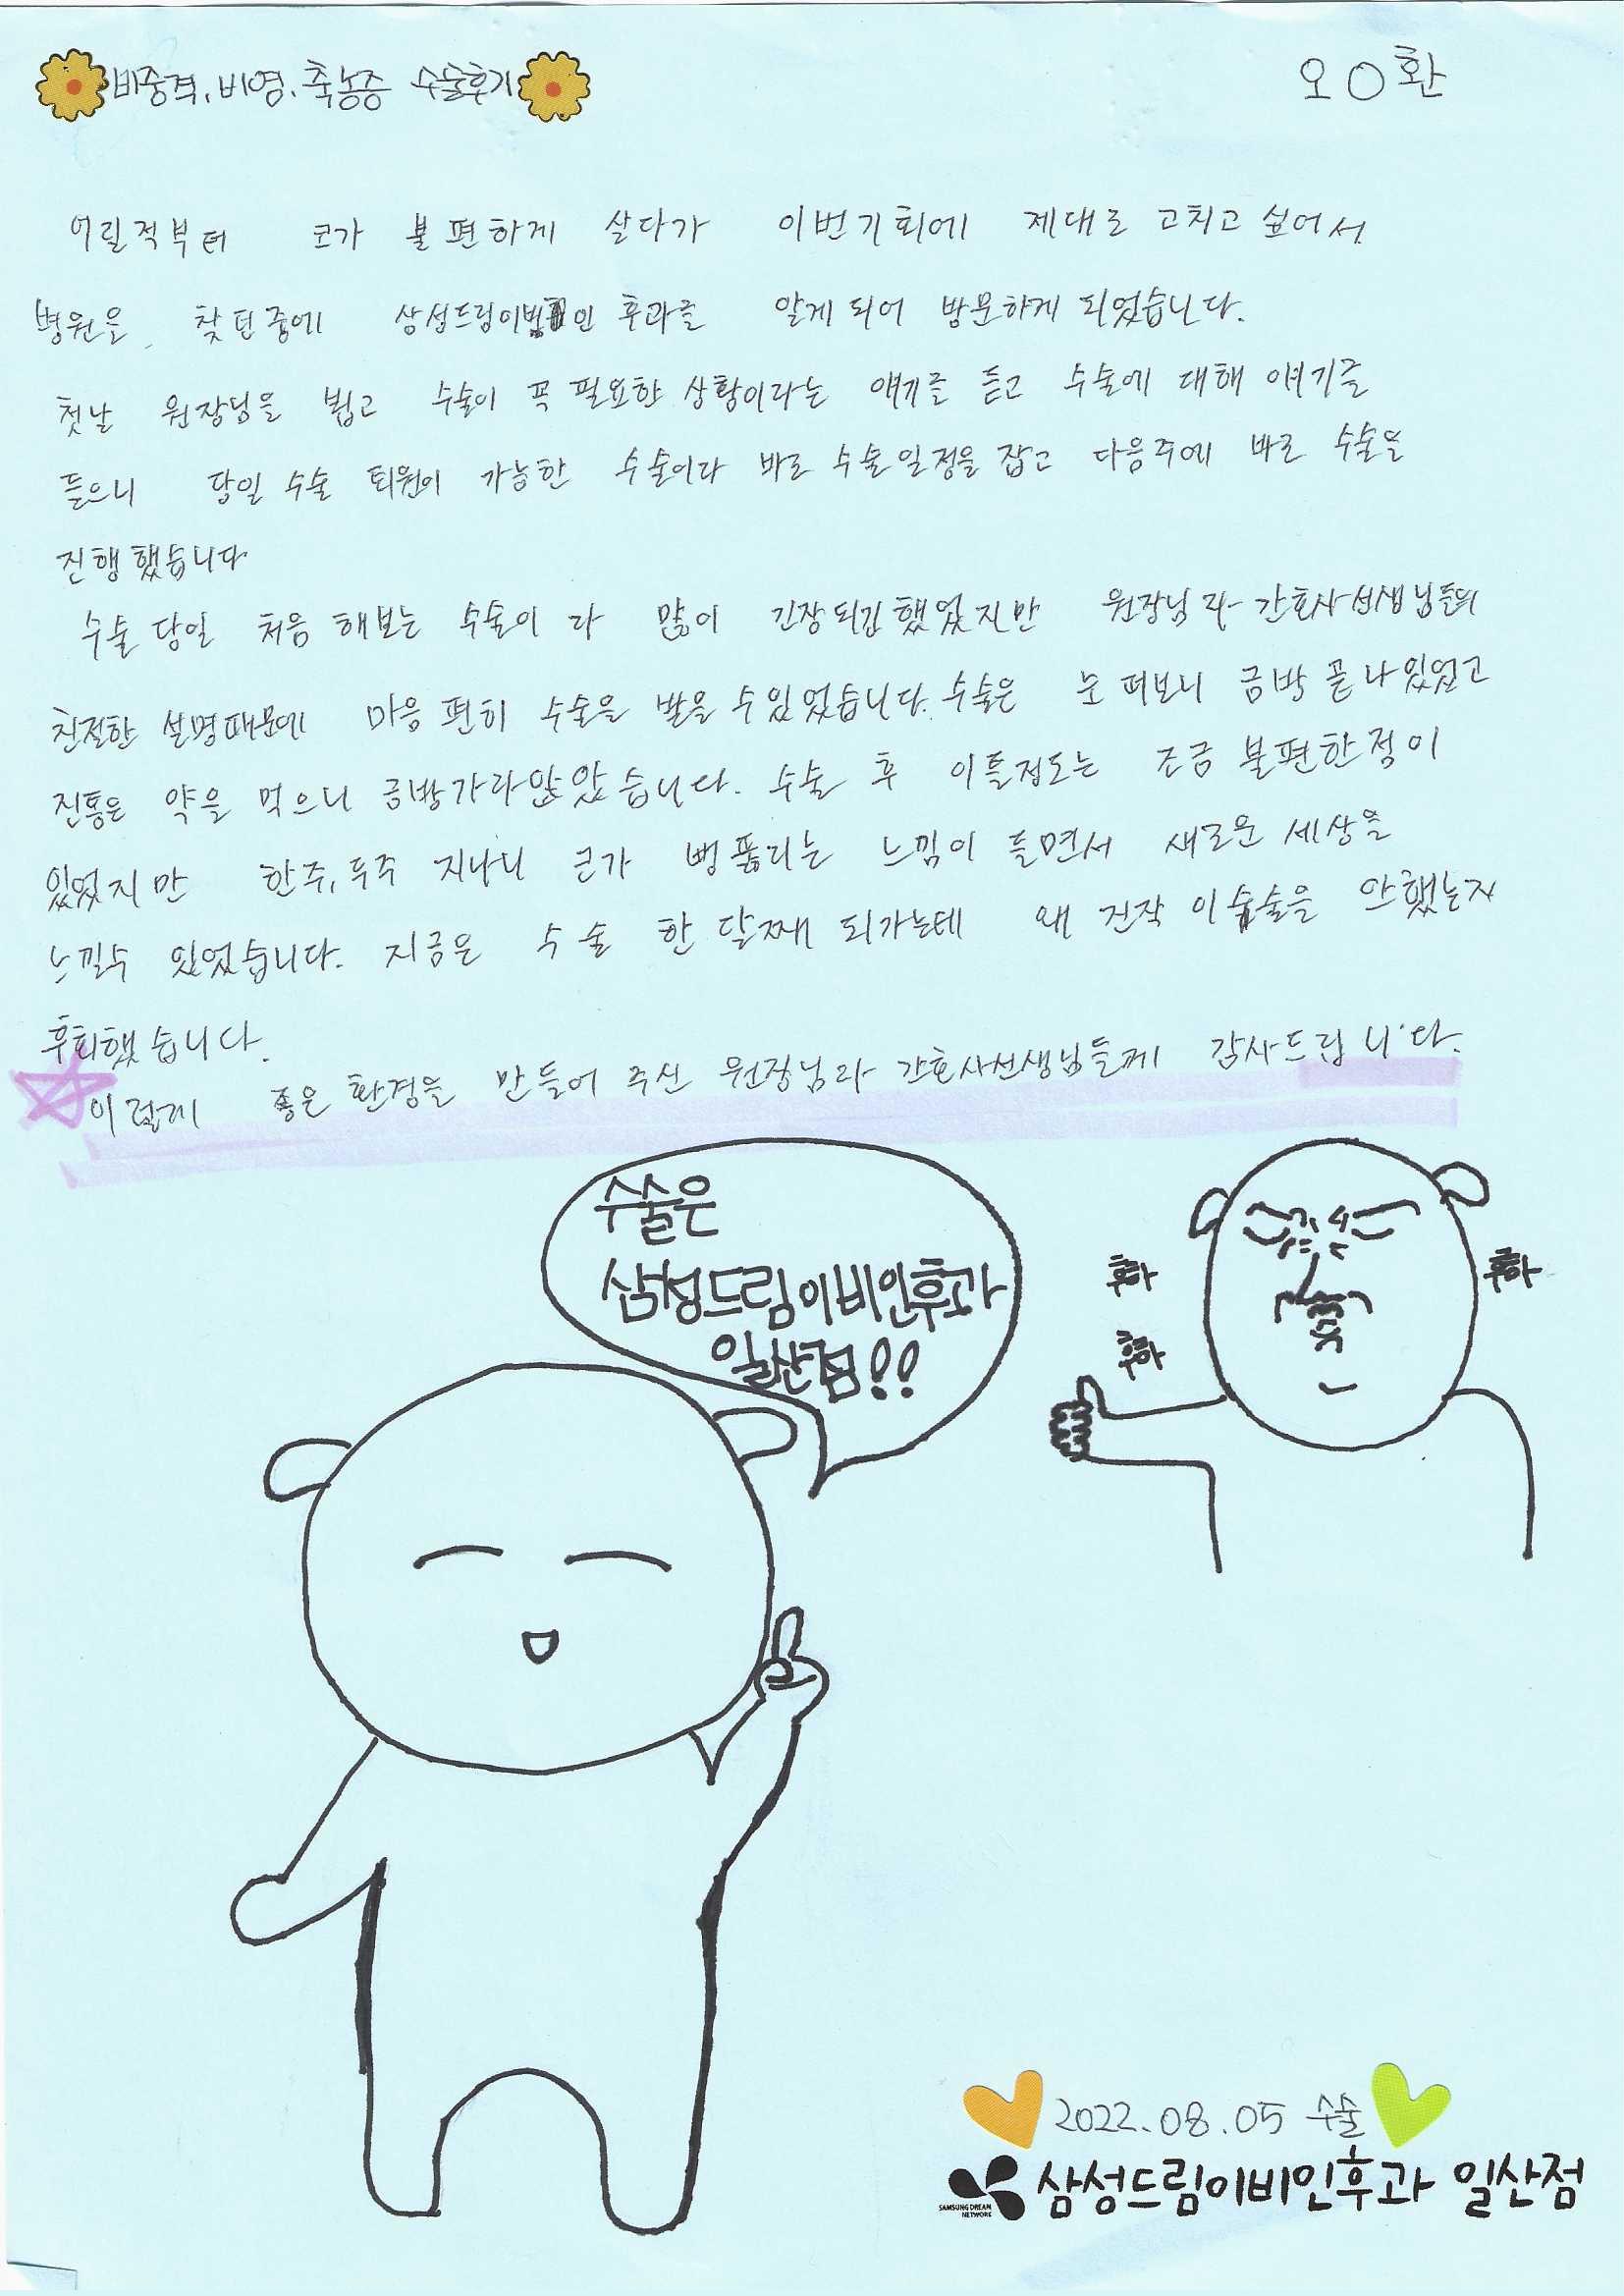 비중격, 비염, 축농증 수술후기
오○환
어릴적부터 코가 불편하게 살다가 이번기회에 제대로 고치고 싶어서
병원을 찾던중에 삼성드림이비인후과를 알게되어 방문하게 되었습니다.
첫날 원장님을 뵙고 수술이 꼭 필요한 상황이라는 얘기를 듣고 수술에 대해 얘기를
들으니 당일 수술 퇴원이 가능한 수술이다 바로 수술일정을 잡고 다음주에 바로 수술을
진행했습니다
수술 당일 처음 해보는 수술이다 많이 긴장되긴했었지만 원장님과 간호사선생님들의
친절한 설명때문에 마음 편히 수술을 받을 수있었습니다. 수술은 눈 떠보니 금방 끝나있었고
진통은 약을 먹으니 금방가라앉았습니다. 수술 후 이틀정도는 조금 불편한점이
있었지만 한주, 두주 지나니 코가 뻥뚫리는 느낌이 들면서 새로운 세상을
느낄수 있었습니다. 지금은 수술 한달째 되가는데 왜 진작 이 수술을 안했는지
후회했습니다.
이렇게 좋은 환경을 만들어 주신 원장님과 간호사선생님들께 감사드립니다.
수술은
삼성드림이비인후과
일산점!!
후하
후하
후하
2022.08.05 수술
SAMSUNG DREAM
NETWORK
삼성드림이비인후과 일산점